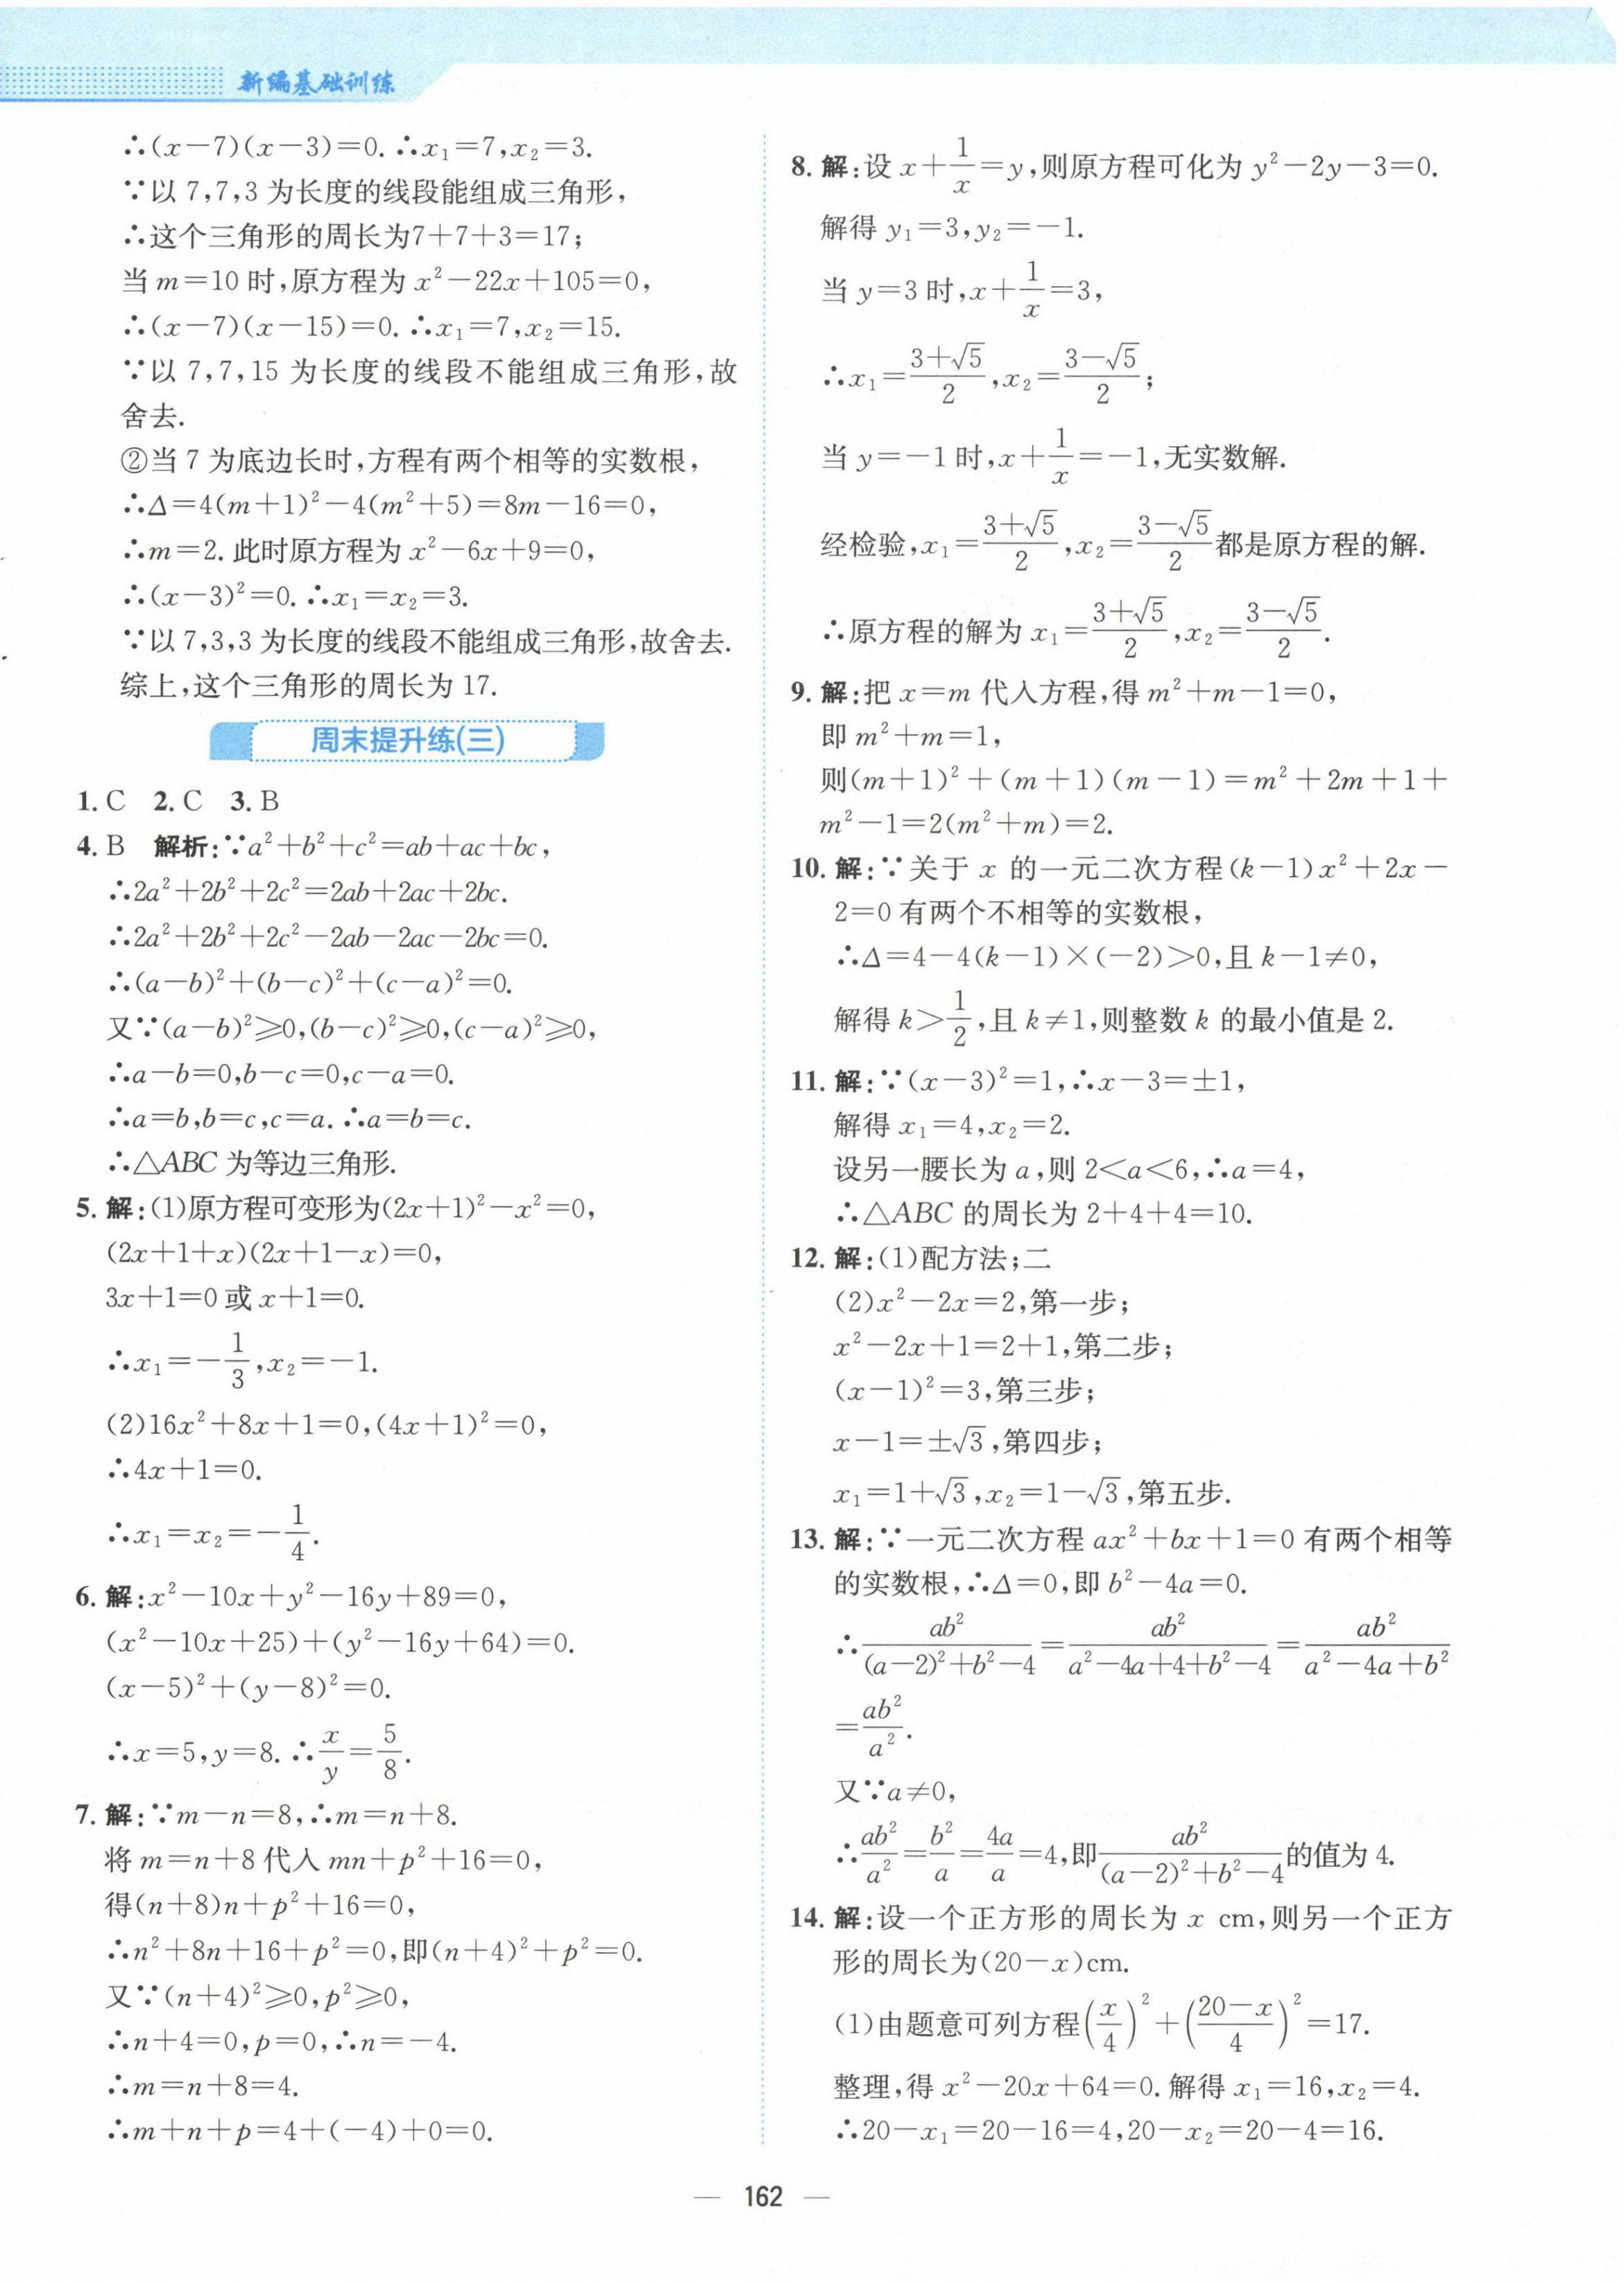 新编基础训练
∴(x-7)(x-3)=0. ∴x₁=7,x₂=3.
∵以 7,7,3 为长度的线段能组成三角形,
∴这个三角形的周长为7+7+3=17;
当 m=10 时,原方程为 x²-22x+105=0,
∴(x-7)(x-15)=0. ∴x₁=7,x₂=15.
∵以 7,7,15 为长度的线段不能组成三角形,故
舍去.
②当 7 为底边长时,方程有两个相等的实数根,
∴Δ=4(m+1)²-4(m²+5)=8m-16=0,
∴m=2. 此时原方程为 x²-6x+9=0,
∴(x-3)²=0. ∴x₁=x₂=3.
∵以 7,3,3 为长度的线段不能组成三角形,故舍去.
综上,这个三角形的周长为 17.
周末提升练(三)
1. C 2. C 3. B
4. B 解析:∵a²+b²+c²=ab+ac+bc,
∴2a²+2b²+2c²=2ab+2ac+2bc.
∴2a²+2b²+2c²-2ab-2ac-2bc=0.
∴(a-b)²+(b-c)²+(c-a)²=0.
又∵(a-b)²≥0,(b-c)²≥0,(c-a)²≥0,
∴a-b=0,b-c=0,c-a=0.
∴a=b,b=c,c=a. ∴a=b=c.
∴△ABC 为等边三角形.
5. 解:(1)原方程可变形为(2x+1)²-x²=0,
(2x+1+x)(2x+1-x)=0,
3x+1=0 或 x+1=0.
∴x₁=-1/3,x₂=-1.
(2)16x²+8x+1=0,(4x+1)²=0,
∴4x+1=0.
∴x₁=x₂=-1/4.
6. 解:x²-10x+y²-16y+89=0,
(x²-10x+25)+(y²-16y+64)=0.
(x-5)²+(y-8)²=0.
∴x=5,y=8. ∴x/y=5/8.
7. 解:∵m-n=8,∴m=n+8.
将 m=n+8 代入 mn+p²+16=0,
得(n+8)n+p²+16=0,
∴n²+8n+16+p²=0,即(n+4)²+p²=0.
又∵(n+4)²≥0,p²≥0,
∴n+4=0,p=0,∴n=-4.
∴m=n+8=4.
∴m+n+p=4+(-4)+0=0.
8. 解:设 x+1/x=y,则原方程可化为 y²-2y-3=0.
解得 y₁=3,y₂=-1.
当 y=3 时,x+1/x=3,
∴x₁=(3+√5)/2,x₂=(3-√5)/2;
当 y=-1 时,x+1/x=-1,无实数解.
经检验,x₁=(3+√5)/2,x₂=(3-√5)/2都是原方程的解.
∴原方程的解为 x₁=(3+√5)/2,x₂=(3-√5)/2.
9. 解:把 x=m 代入方程,得 m²+m-1=0,
即 m²+m=1,
则(m+1)²+(m+1)(m-1)=m²+2m+1+
m²-1=2(m²+m)=2.
10. 解:∵关于 x 的一元二次方程(k-1)x²+2x-
2=0 有两个不相等的实数根,
∴Δ=4-4(k-1)×(-2)>0,且 k-1≠0,
解得 k>1/2,且 k≠1,则整数 k 的最小值是 2.
11. 解:∵(x-3)²=1,∴x-3=±1,
解得 x₁=4,x₂=2.
设另一腰长为 a,则 2<a<6,∴a=4,
∴△ABC 的周长为 2+4+4=10.
12. 解:(1)配方法;二
(2)x²-2x=2,第一步;
x²-2x+1=2+1,第二步;
(x-1)²=3,第三步;
x-1=±√3,第四步;
x₁=1+√3,x₂=1-√3,第五步.
13. 解:∵一元二次方程 ax²+bx+1=0 有两个相等
的实数根,∴Δ=0,即 b²-4a=0.
∴ab²/((a-2)²+b²-4)=ab²/(a²-4a+4+b²-4)=ab²/(a²-4a+b²)
=ab²/a².
又∵a≠0,
∴ab²/a²=b²/a=4a/a=4,即ab²/((a-2)²+b²-4)的值为 4.
14. 解:设一个正方形的周长为 x cm,则另一个正方
形的周长为(20-x)cm.
(1)由题意可列方程(x/4)²+((20-x)/4)²=17.
整理,得 x²-20x+64=0. 解得 x₁=16,x₂=4.
∴20-x₁=20-16=4,20-x₂=20-4=16.
— 162 —